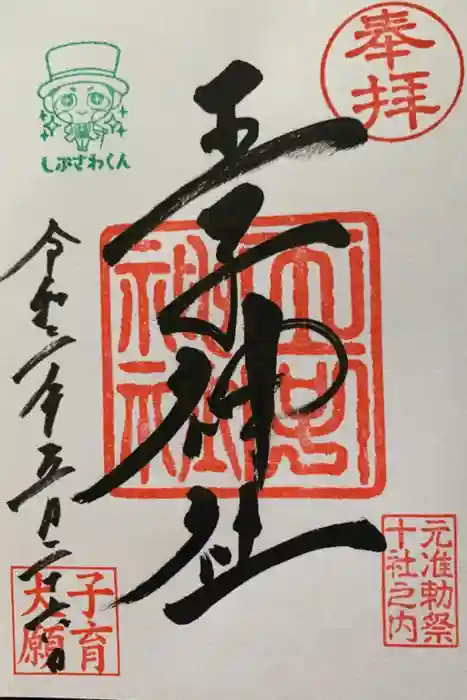 奉拝
王子神社
しぶさわくん
令和二年五月二十六日
元准勅祭
十社之内
子育
大願